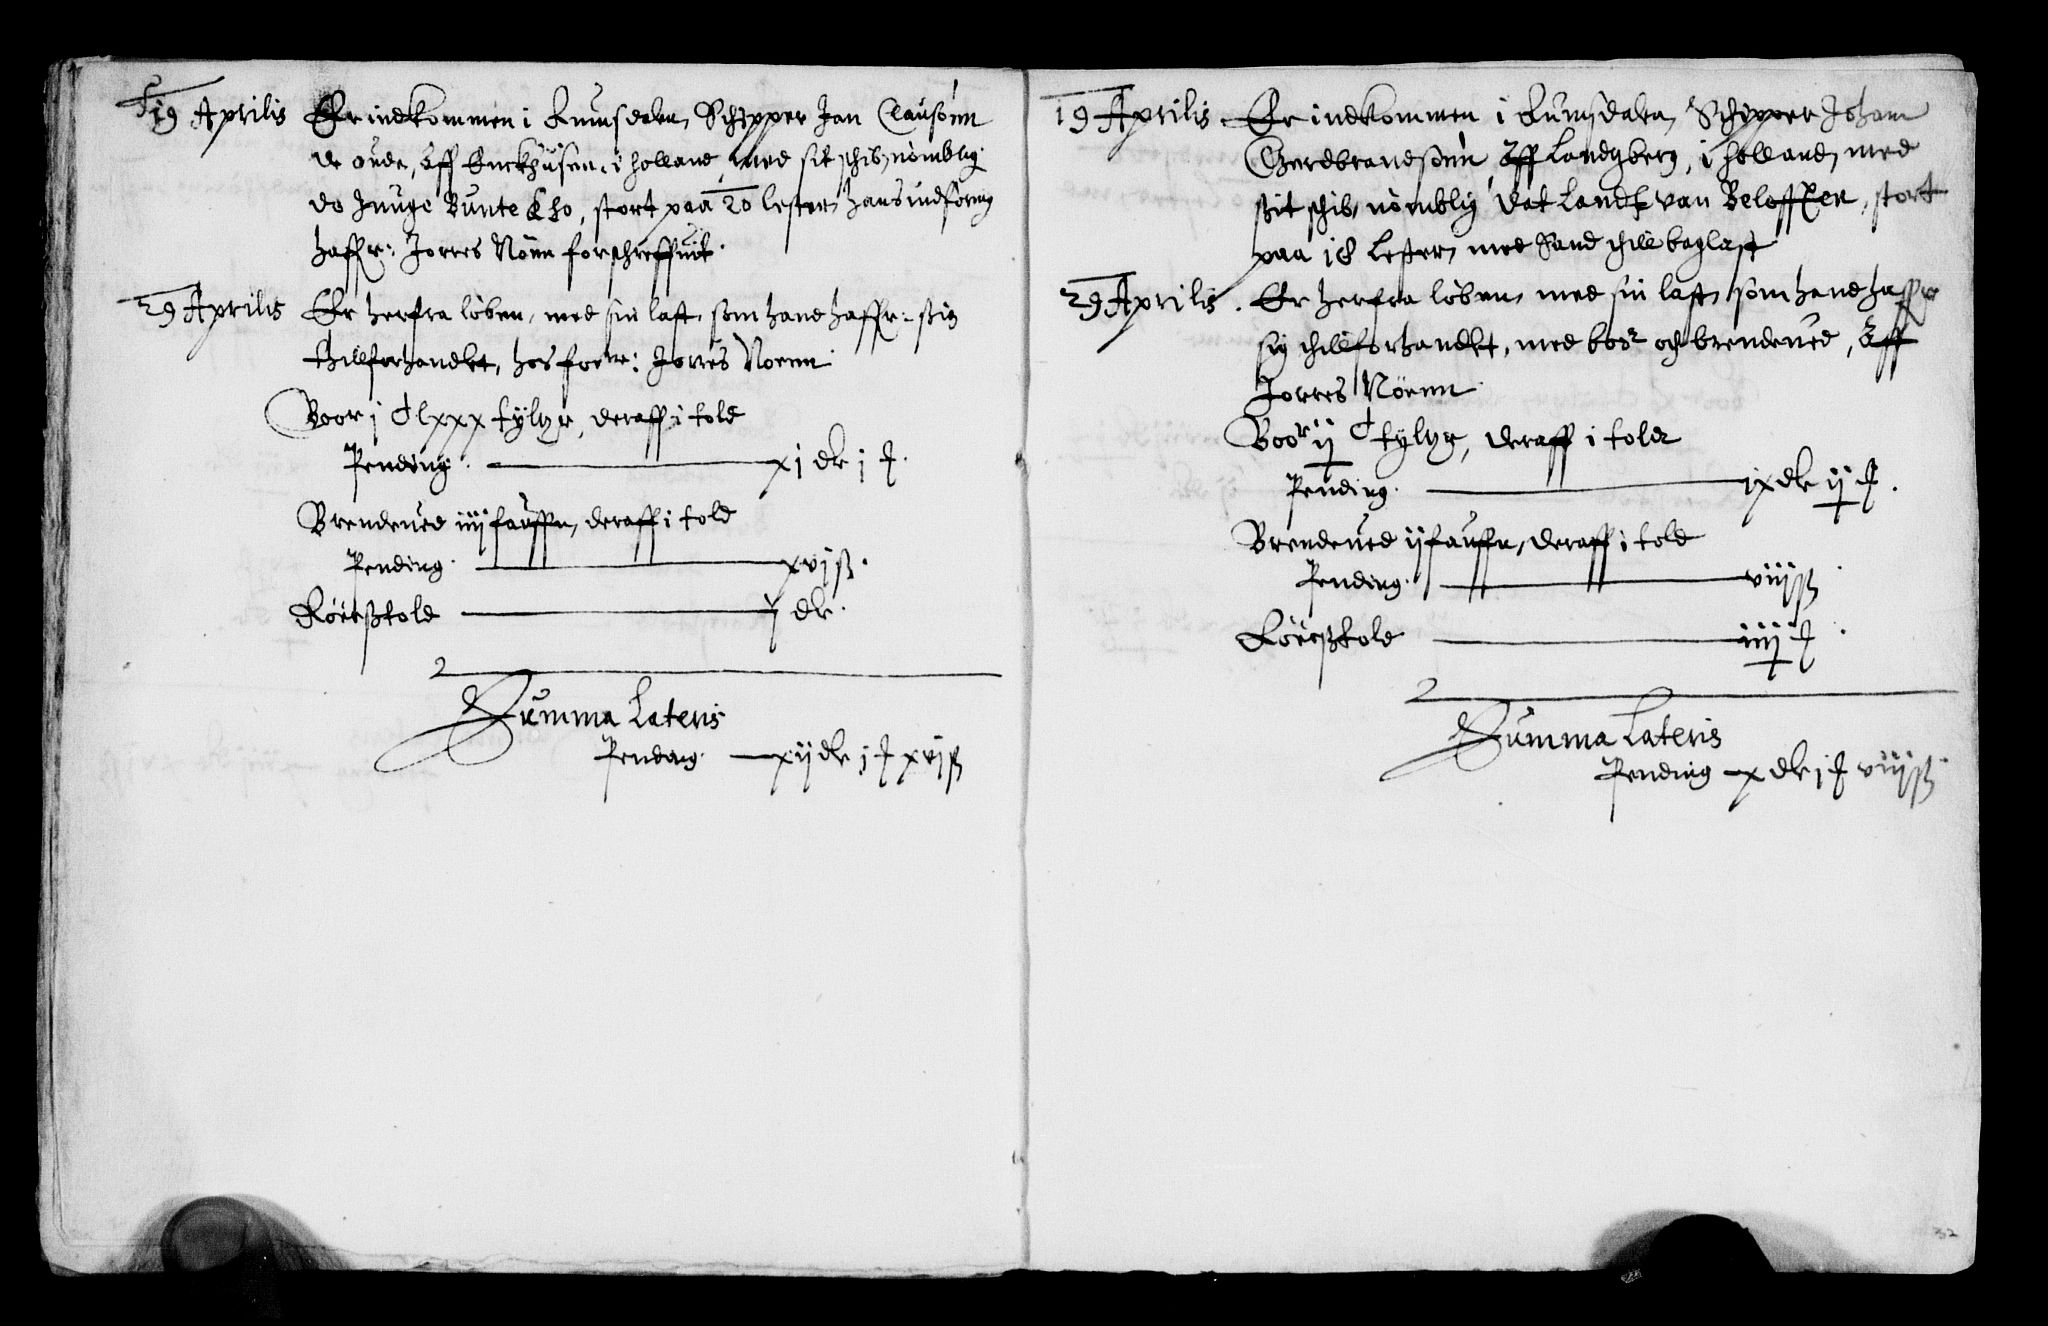 19 Aprilis Er indkommen i Rumsdalen, Schipper Jan Clausönn
de oude, Aff Enckhüsen, i holland, med sit schib, nömblig
de Junge Bunte Kho, stort paa 20 lester, hans indföring
haffr: Jorres Nönn forschreffuit.
29 Aprilis Er herfra löben, med sin last, som hand haffr: sig
thillforhandlt, hos forne: Jorres Noenn.
Boor j C lxxx tylter, deraff i told
Pending. xj dlr j
Brendeued iiij fauffn, deraff i told
Pending. xvj ß.
Röerßtold j dlr.
Summa Lateris
Pending. xij dlr j xvj ß
19 Aprilis. Er indkommen i Rumsdalen, Schipper Johann
Gerdbrandsönn, Aff Landsberg, i holland, med
sit schib, nömblig Dat Landt van Beloffte, stort
paa 18 Lester, med Sand thill baglast
29 Aprilis. Er herfra löben, med sin last, som hand haffr
sig thillforhandlt, med bor och brendeued, Aff
Jorres Nörnn.
Boor ij C tylter, deraff i told
Pending. ix dlr ij
Brendeued ij fauffn, deraff i told
Pending. viij ß
Röerßtold iiij
Summa Lateris
Pending x dlr j viij ß
32